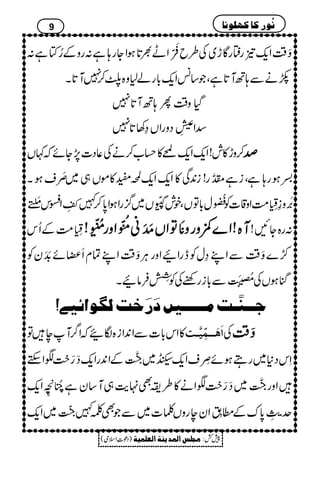 نُور کا کھلونا
9
وَقت ایک تیز رفتار گاڑی کی طرح فَرّاٹے بھرتا ہوا جارہا ہے نہ روکے رُکتا ہے نہ
پکڑنے سے ہاتھ آتا ہے، جو سانس ایک بار لے لیا وہ پلٹ کر نہیں آتا۔
گیا وقت پھر ہاتھ آتا نہیں
سدا عیشِ دوراں دِکھاتا نہیں
صد کروڑ کاش! ایک ایک لمحے کا حساب کرنے کی عادت پڑ جائے کہ کہاں
بسر ہو رہا ہے، زہے مقدَّر! زندگی کا ایک ایک لمحہ مفید کاموں ہی میں صَرف ہو۔
بروزِ قِیامت اوقات کو فُضول باتوں، خوش گپّیوں میں گزرا ہوا پا کر کہیں کفِ افسوس مَلتے
نہ رہ جائیں! آہ! اے کمزور و ناتواں
گناہوں کی مصیبت سے باز رکھنے کی کوشش فرمائیے۔
جنّت میں دَرَخت لگوائیے!
وَقت کی اَہَمِّیَّت کا اس بات سے اندازہ لگائیے کہ اگر آپ چاہیں تو
اِس دنیا میں رہتے ہوئے صِرف ایک سیکنڈ میں جنّت کے اندر ایک دَرَخت لگوا سکتے
ہیں اور جنّت میں دَرَخت لگوانے کا طریقہ بھی نہایت ہی آسان ہے چُنانچِہ ایک
حدیثِ پاک کے مطابِق ان چاروں کلمات میں سے جو بھی کلمہ کہیں جنّت میں ایک
پیش کش: مجلس المدینۃ العلمیۃ (دعوتِ اسلامی)